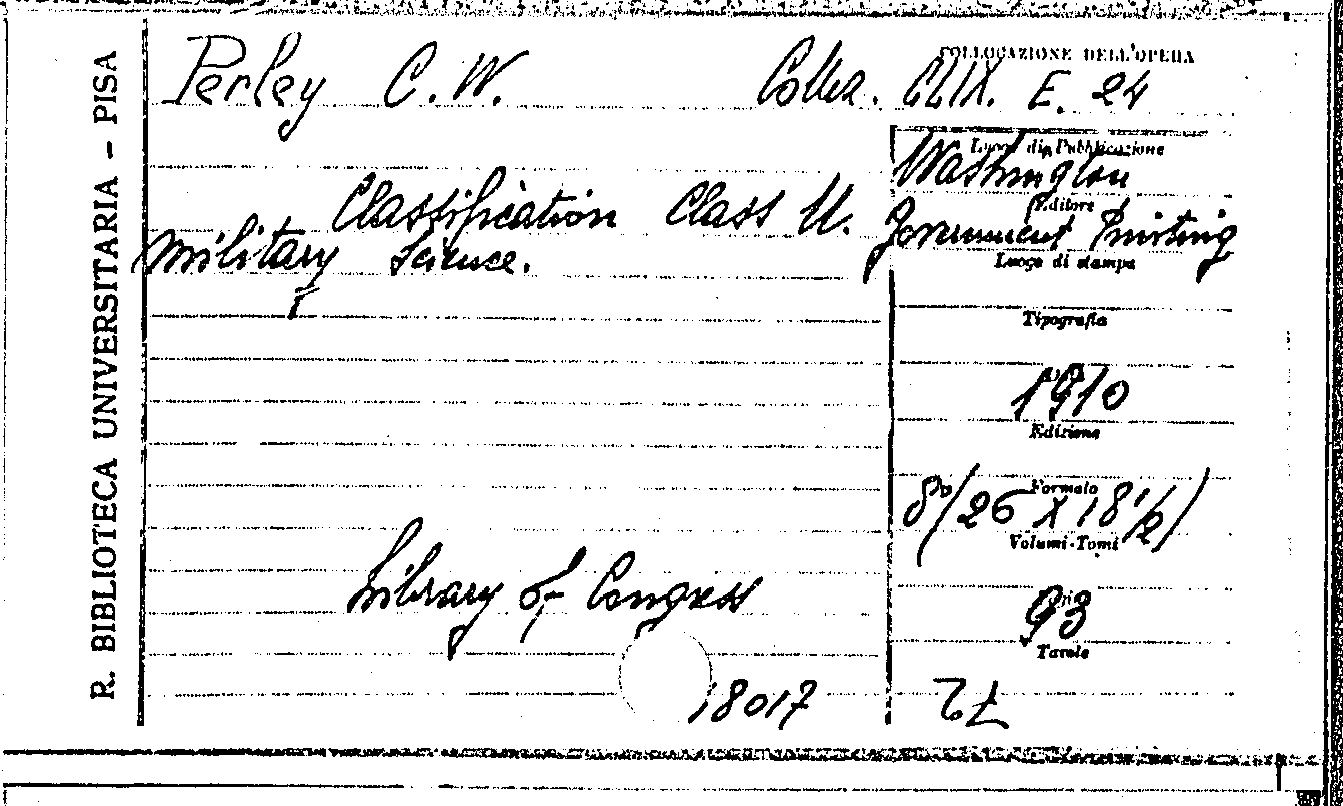 R. BIBLIOTECA UNIVERSITARIA - PISA
COLLOCAZIONE DELL'OPERA
Perley C. W. Collez. CLIX. E. 24
Luogo di Pubblicazione
Washington
Classification Class U.
Editore
Government Printing
Military Science.
Luogo di stampa
Tipografia
1910
Edizione
Formato
8º/26 X 18 1/2)
Volumi-Tomi
Library of Congress
93
Tavole
18017